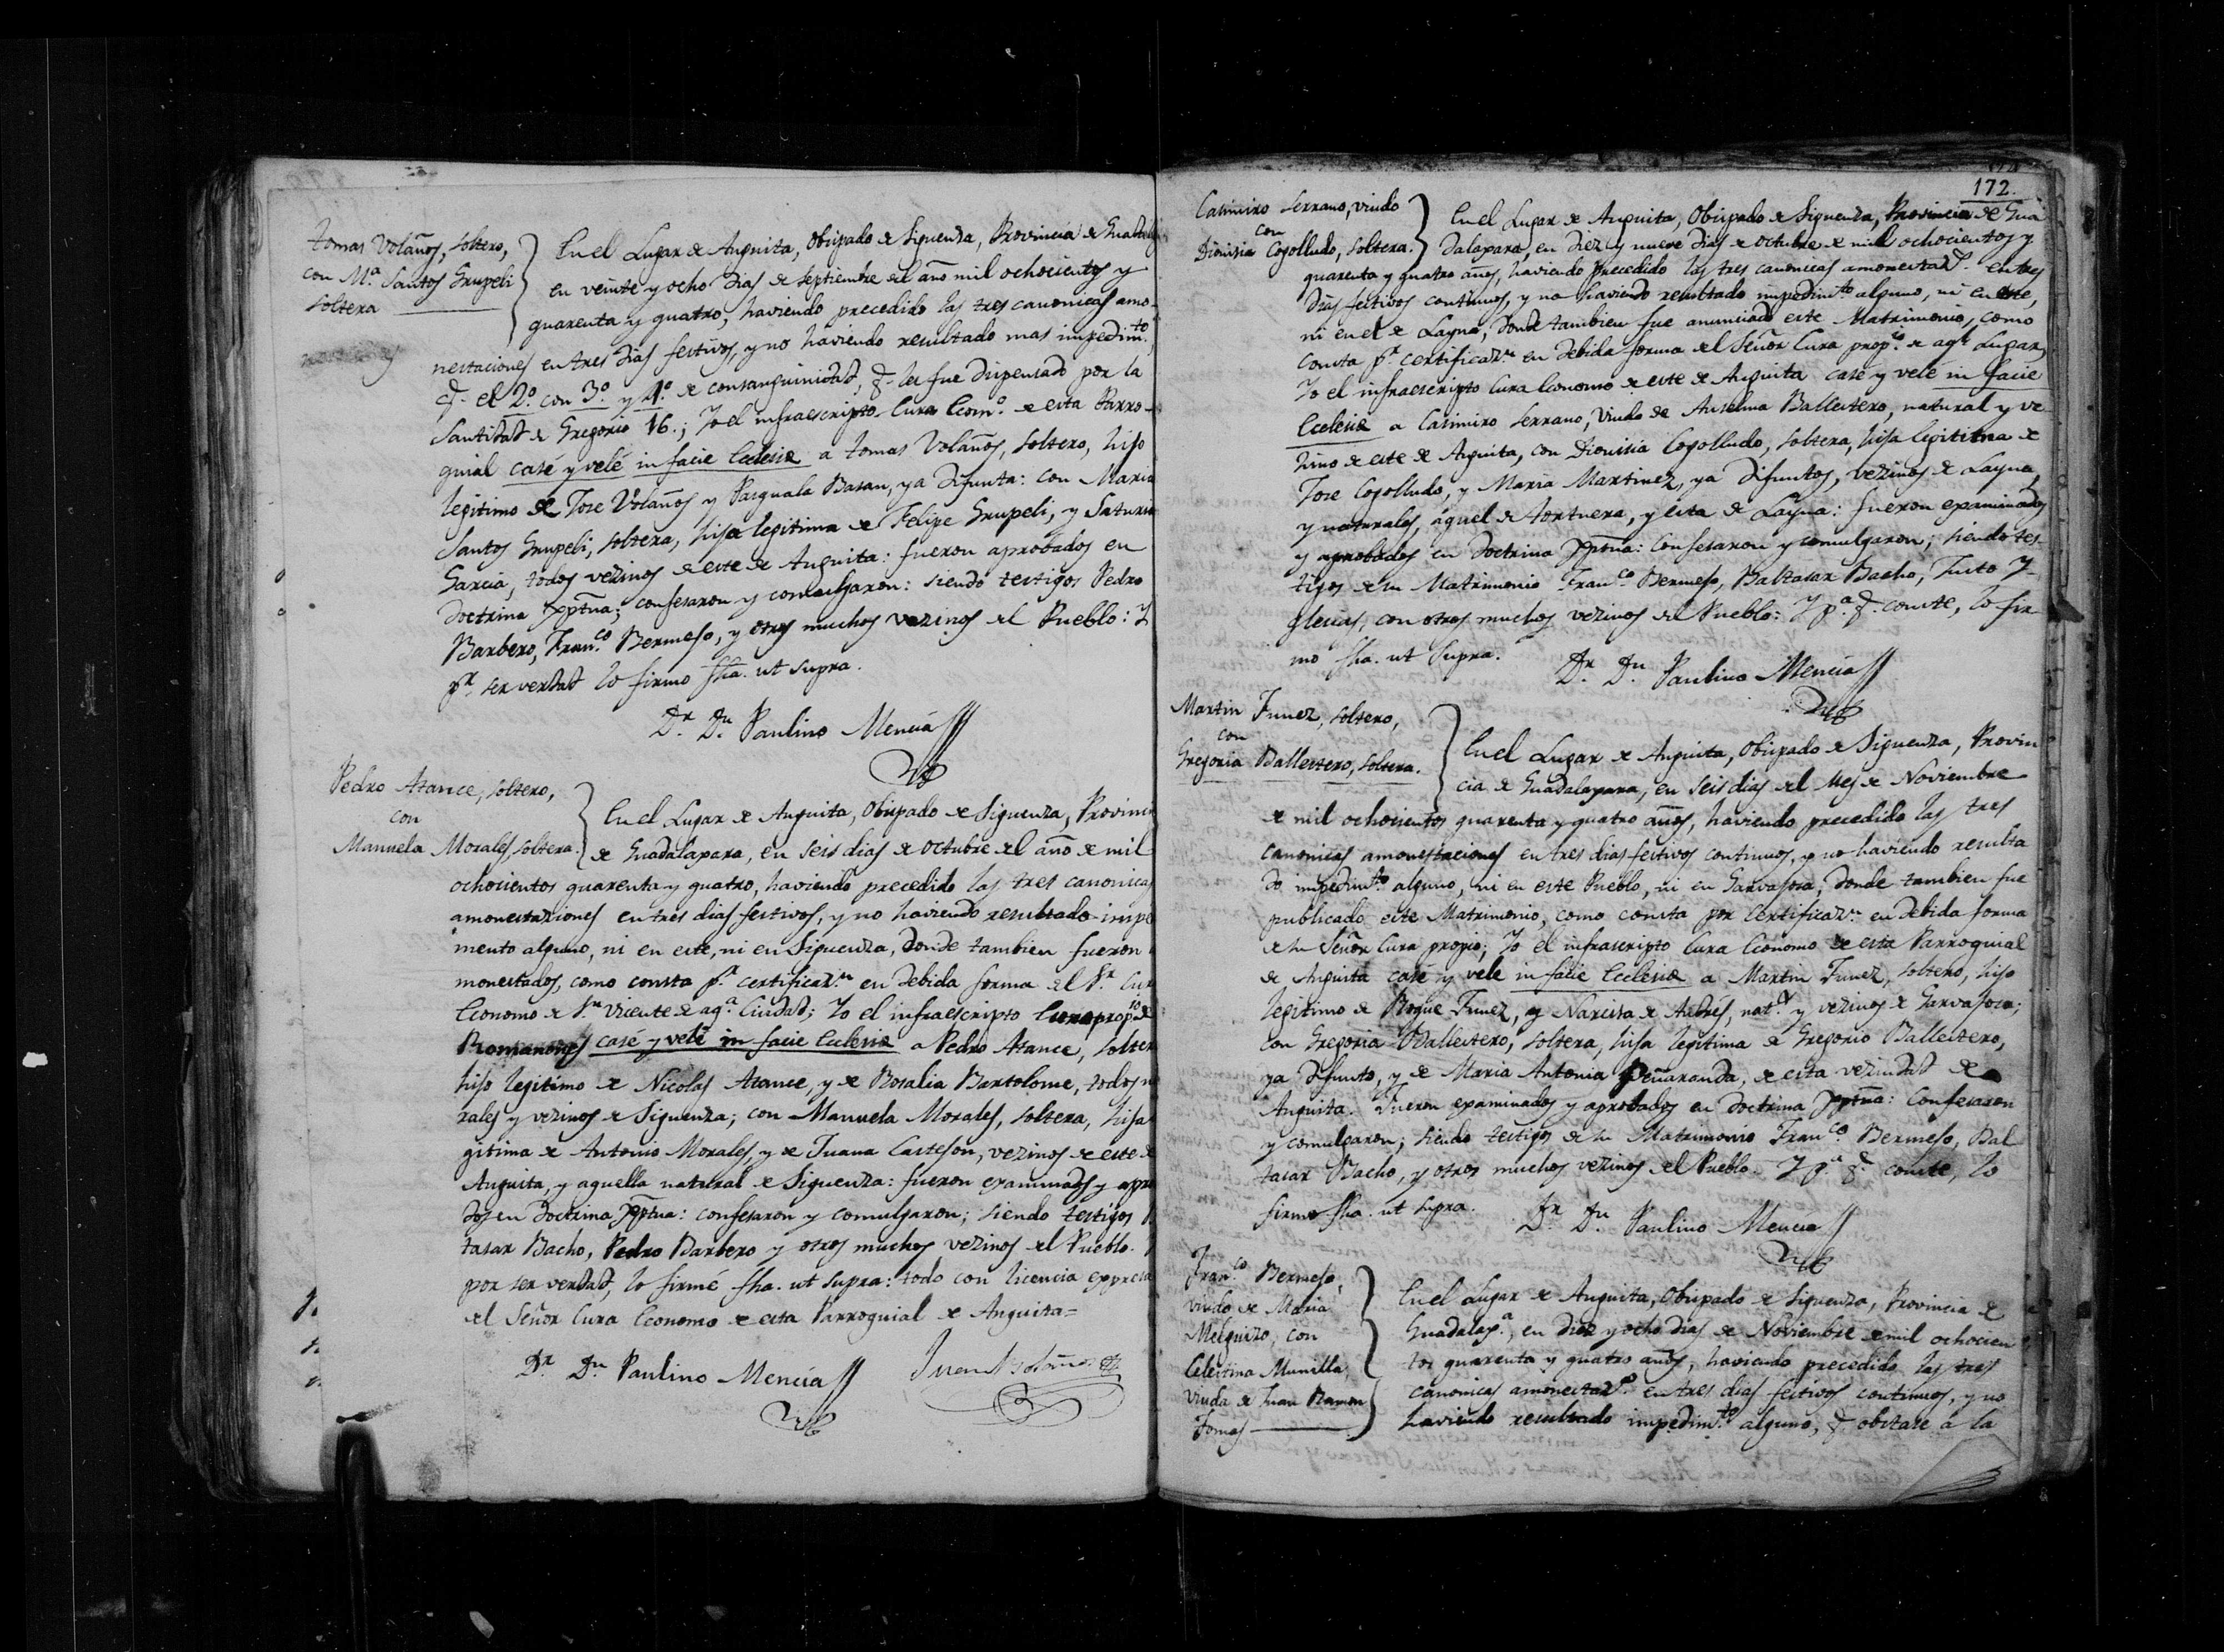 Tomas Volaños, soltero,
con Mª Santos Grupeli
soltera
En el Lugar de Anguita, Obispado de Siguenza, Provincia de Guadala
en veinte y ocho dias de septiembre del año mil ochocientos y
quarenta y quatro, haviendo precedido las tres canonicas amo-
nestaciones en tres dias festivos, y no haviendo resultado mas impedim.to,
q.e el 2.º con 3.º y 4.º de consanguinidad, q.e les fue dispensado por la
Santidad de Gregorio 16.; Yo el infraescripto Cura Econ.º de esta Parro-
quial casé y velé in facie Eclesiæ a Tomas Volaños, soltero, hijo
legitimo de Jose Volaños y Pasquala Basan, ya difunta: con Maria
Santos Grupeli, soltera, hija legitima de Felipe Grupeli, y Saturia
Garcia, todos vezinos de este de Anguita: fueron aprobados en
Doctrina Xptna; confesaron y comulgaron: siendo testigos Pedro
Barbero, Fran.co Bermejo, y otros muchos vezinos del Pueblo: Y
p.r ser verdad lo firmo fha. ut supra.
D.r D.n Paulino Mencía
Pedro Atance, soltero,
con
Manuela Morales, soltera.
En el Lugar de Anguita, Obispado de Siguenza, Provinci
de Guadalaxara, en seis dias de octubre del año de mil
ochocientos quarenta y quatro, haviendo precedido las tres canonicas
amonestaziones en tres dias festivos, y no haviendo resultado impe
mento alguno, ni en este, ni en Siguenza, donde tambien fueron
monestados, como consta p.r certificaz.n en debida forma del S.r Cur
Economo de S.n Vicente de aq.a Ciudad; Yo el infraescripto Cura prop.io de
Romanones casé y velé in facie Eclesiæ a Pedro Atance, solter
hijo legitimo de Nicolas Atance, y de Rosalia Bartolome, todos n
rales y vezinos de Siguenza; con Manuela Morales, soltera, hija
gitima de Antonio Morales, y de Juana Castejon, vezinos de este d
Anguita, y aquella natural de Siguenza: fueron examinados y apro
dos en Doctrina Xptna: confesaron y comulgaron; siendo testigos
tasar Bacho, Pedro Barbero y otros muchos vezinos del Pueblo.
por ser verdad, lo firmé fha. ut supra: todo con licencia expresa
del Señor Cura Economo de esta Parroquial de Anguita=
D.r D.n Paulino Mencía
172.
Casimiro Serrano, viudo
con
Dionisia Cogolludo, soltera.
En el Lugar de Anguita, Obispado de Siguenza, Provincia de Gua
dalaxara, en diez y nueve dias de octubre de mil ochocientos y
quarenta y quatro años, haviendo precedido las tres canonicas amonestaz.s en tres
dias festivos continuos, y no haviendo resultado impedim.to alguno, ni en este,
ni en el de Layna, donde tambien fue anunciado este Matrimonio, como
consta p.r certificaz.n en debida forma del Señor Cura prop.io de aq.l Lugar,
Yo el infraescripto Cura Economo de este de Anguita casé y velé in facie
Eclesiæ a Casimiro Serrano, viudo de Anselma Ballestero, natural y ve-
zino de este de Anguita, con Dionisia Cogolludo, soltera, hija legitima de
Jose Cogolludo, y Maria Martinez, ya difuntos, vezinos de Layna,
y naturales, aquel de Tortuera, y esta de Layna: fueron examinados
y aprobados en Doctrina Xptna: Confesaron y comulgaron; siendo tes-
tigos de su Matrimonio Fran.co Bermejo, Baltasar Bacho, Justo Y-
glesias, con otros muchos vezinos del Pueblo: Y p.a q.e conste, lo fir-
mo fha. ut supra.
D.r D.n Paulino Mencía
Martin Funez, soltero,
con
Gregoria Ballestero, soltera.
En el Lugar de Anguita, Obispado de Siguenza, Provin
cia de Guadalaxara, en seis dias del Mes de Noviembre
de mil ochocientos quarenta y quatro años, haviendo precedido las tres
canonicas amonestaciones en tres dias festivos continuos, y no haviendo resulta
do impedim.to alguno, ni en este Pueblo, ni en Garvajosa, donde tambien fue
publicado este Matrimonio, como consta por certificaz.n en debida forma
de su Señor Cura propio; Yo el infrascripto Cura Economo de esta Parroquial
de Anguita casé y velé in facie Eclesiæ a Martin Funez, soltero, hijo
legitimo de Roque Funez, y Narcisa de Andres, nat.s y vezinos de Garvajosa;
con Gregoria Ballestero, soltera, hija legitima de Gregorio Ballestero,
ya difunto, y de Maria Antonia Peñaranda, de esta vezindad de
Anguita. Fueron examinados y aprobados en Doctrina Xptna: Confesaron
y comulgaron; siendo testigos de su Matrimonio Fran.co Bermejo, Bal
tasar Bacho, y otros muchos vezinos del Pueblo. Y p.a q.e conste, lo
firmo fha. ut supra.
D.r D.n Paulino Mencía
Fran.co Bermejo,
viudo de Maria
Melguizo, con
Celestina Munilla,
viuda de Juan Ramon
Tomas
En el Lugar de Anguita, Obispado de Siguenza, Provincia de
Guadalax.a, en diez y ocho dias de Noviembre de mil ochocien
tos quarenta y quatro años, haviendo precedido las tres
canonicas amonestaz.s en tres dias festivos continuos, y no
haviendo resultado impedim.to alguno, q.e obstase a la